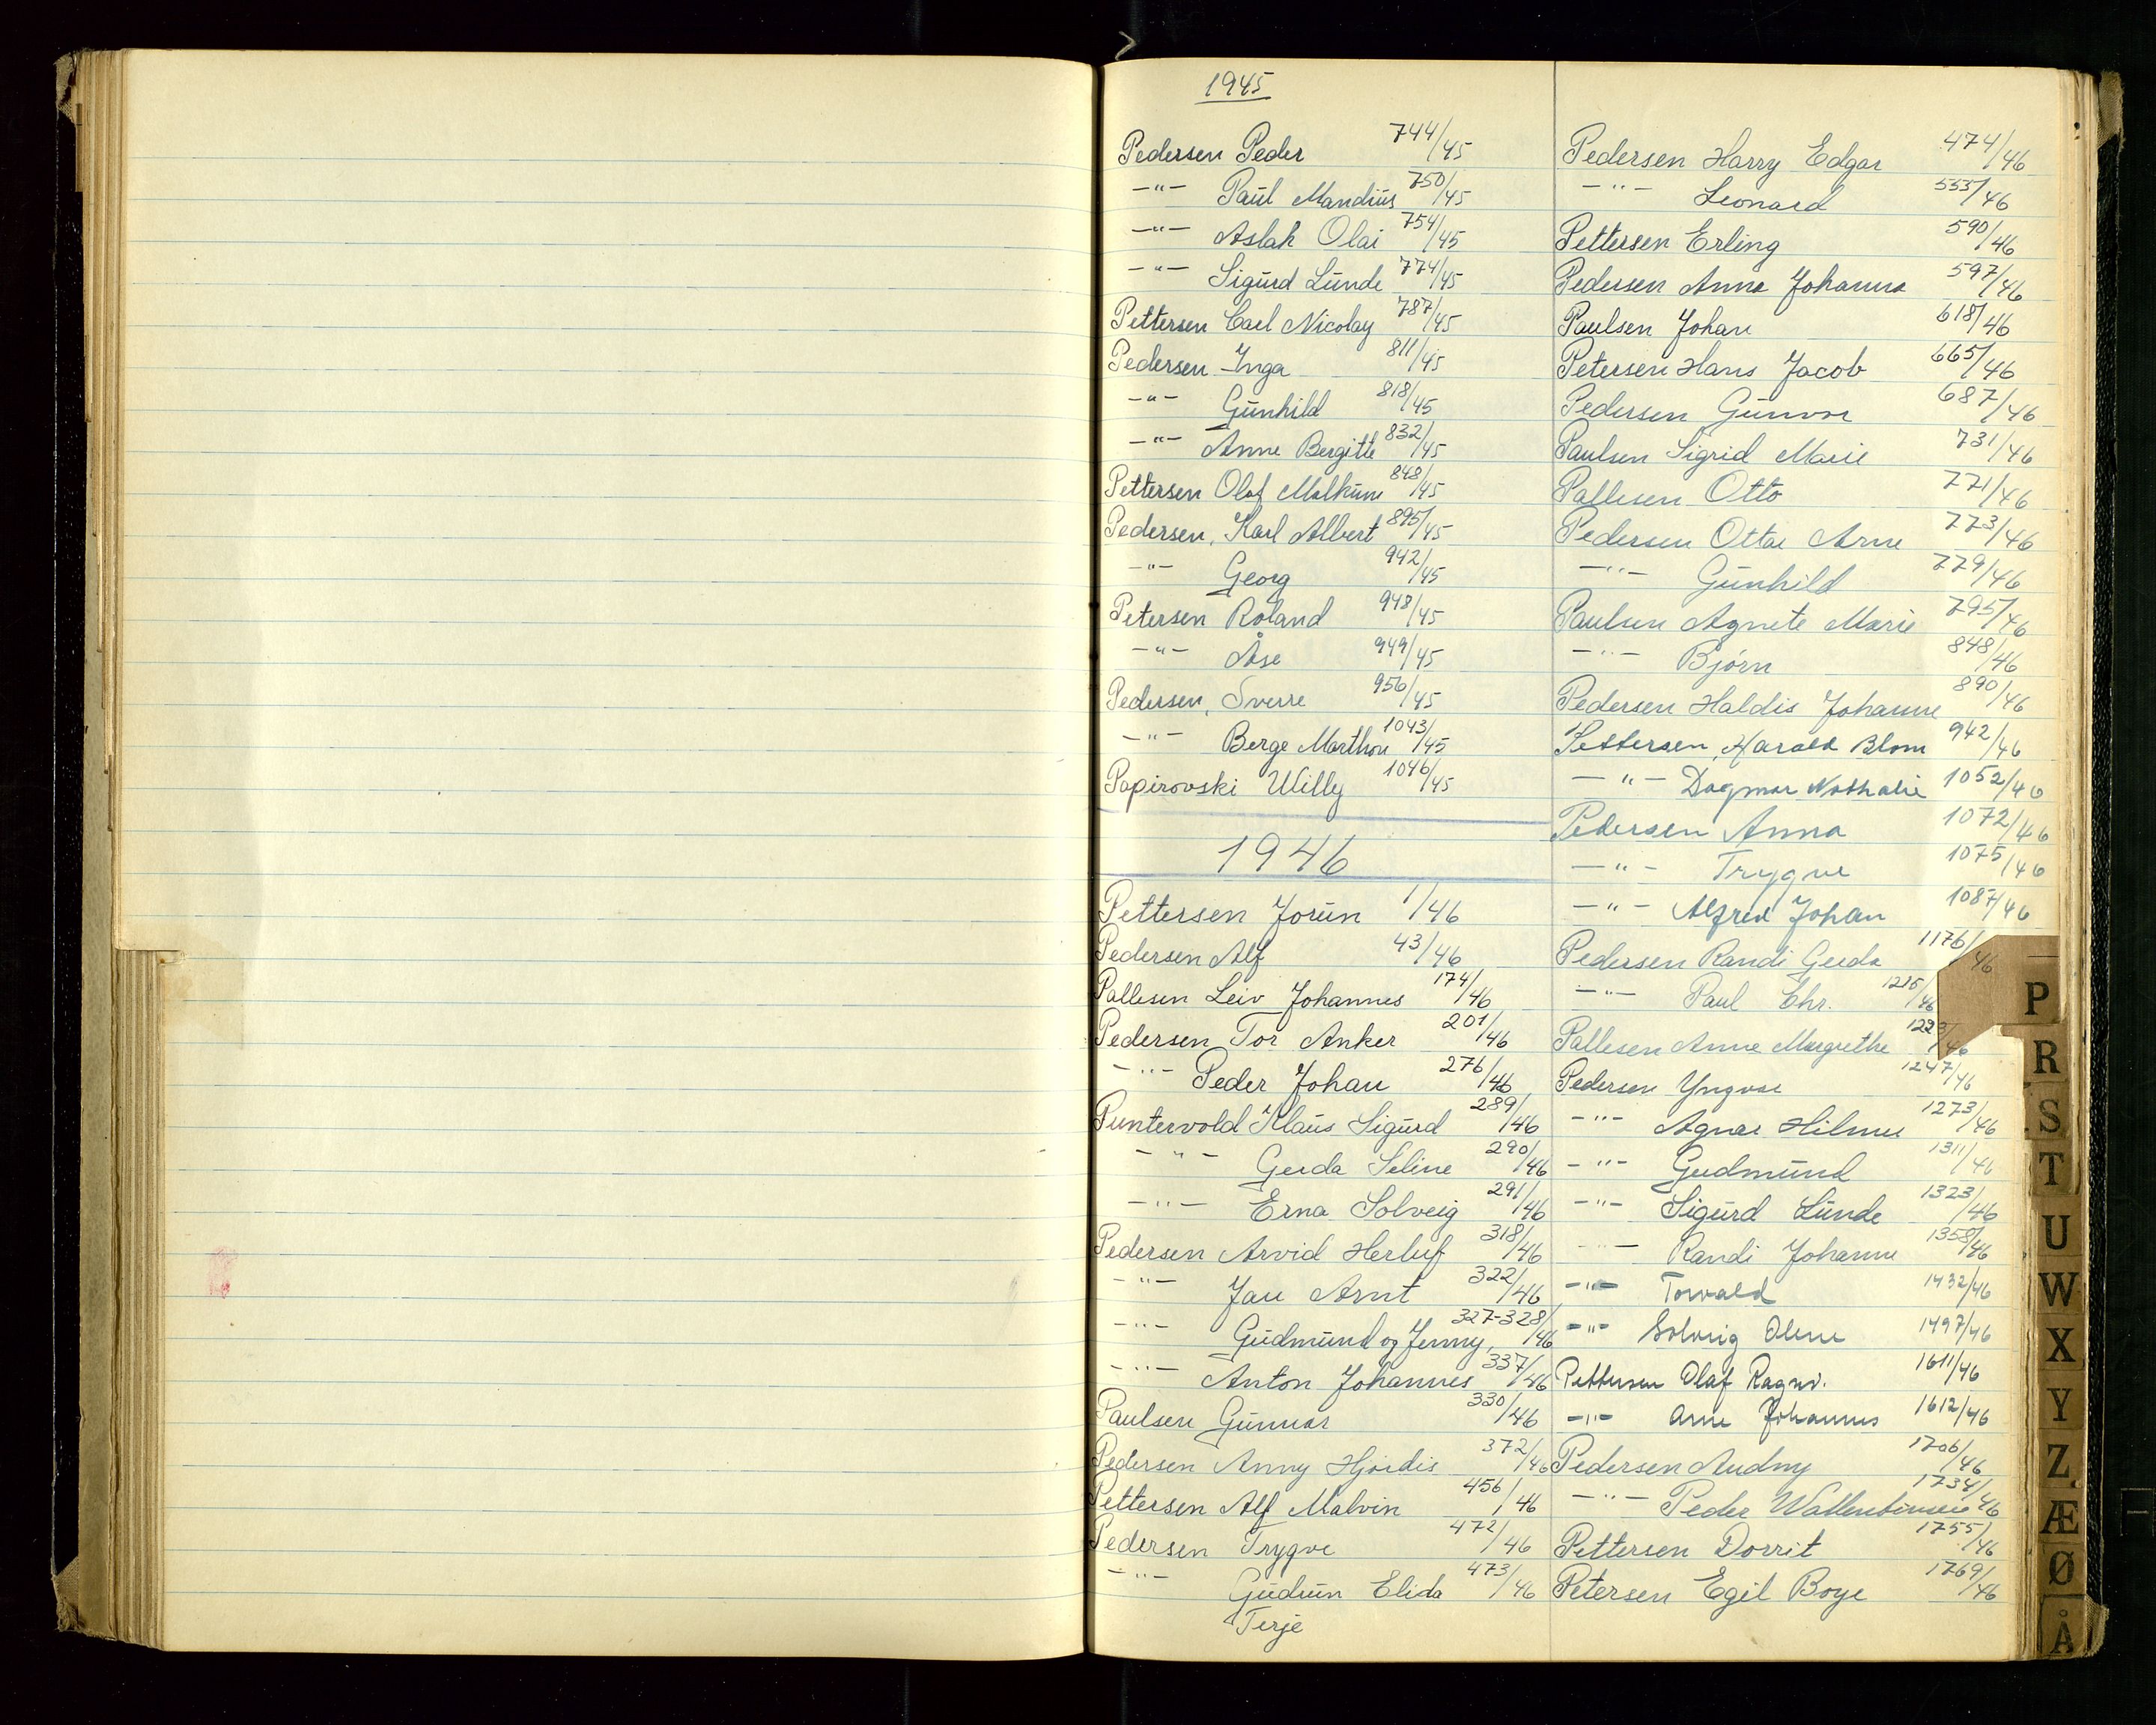 1945
Pedersen Peder 744/45
-"- Paul Mandius 750/45
-"- Aslak Olai 754/45
-"- Sigurd Lunde 774/45
Pettersen Carl Nicolay 787/45
Pedersen Inga 811/45
-"- Gunhild 818/45
-"- Anne Bergitte 832/45
Pettersen Olaf 848/45
Pedersen, Karl Albert 895/45
-"- Georg 942/45
Petersen Roland 948/45
-"- Åse 949/45
Pedersen, Sverre 956/45
-"- Berge Marthon 1043/45
Papirovski Willy 1046/45
1946
Pettersen Jorun 1/46
Pedersen Alf 43/46
Pallesen Leiv Johannes 174/46
Pedersen Tor Anker 201/46
-"- Peder Johan 276/46
Puntervold Klaus Sigurd 289/46
-"- Gerda Seline 290/46
-"- Erna Solveig 291/46
Pedersen Arvid Herluf 318/46
-"- Jan Arnt 322/46
-"- Gudmund og Jenny, 327-328/46
-"- Anton Johannes 337/46
Paulsen Gunnar 330/46
Pedersen Anny Hjørdis 372/46
Pettersen Alf Malvin 456/46
Pedersen Trygve 472/46
-"- Gudrun Elida 473/46
Terje
Pedersen Harry Edgar 474/46
-"- Leonard 553/46
Pettersen Erling 590/46
Pedersen Anna Johanna 597/46
Paulsen Johan 618/46
Petersen Hans Jacob 665/46
Pedersen Gunvor 687/46
Paulsen Sigrid Marie 731/46
Pallesen Otto 771/46
Pedersen Ottar Arne 773/46
-"- Gunhild 779/46
Paulsen Agnete Marie 795/46
-"- Bjørn 848/46
Pedersen Haldis Johanne 890/46
Pettersen, Harald Blom 942/46
-"- Dagmar Nathalie 1052/46
Pedersen Anna 1072/46
-"- Trygve 1075/46
-"- Alfred Johan 1087/46
Pedersen Randi Gerda 1176/46
-"- Paul Chr. 1215/46
Pallesen Anne Margrethe 1223/46
Pedersen Yngvar 1247/46
-"- Agnar Hilmer 1273/46
-"- Gudmund 1311/46
-"- Sigurd Lunde 1323/46
-"- Randi Johanne 1358/46
-"- Torvald 1432/46
-"- Solveig Olene 1497/46
Pettersen Olaf Ragnv. 1611/46
-"- Arne Johannes 1612/46
Pedersen Audny 1706/46
-"- Peder 1734/46
Pettersen Dorrit 1755/46
Petersen Egil Boye 1769/46
P
R
S
T
U
W
X
Y
Z
Æ
Ø
Å